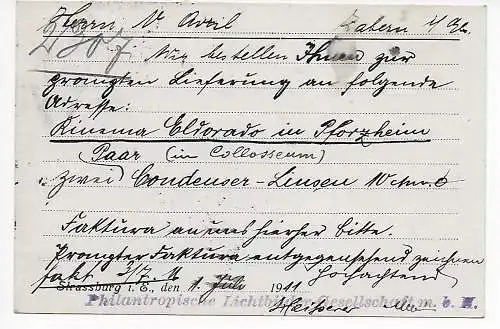 Herrn V. Avril Zabern i/Els.
Wir bestellen Ihnen zur
prompten Lieferung an folgende
Adresse:
Kinema Eldorado in Pforzheim
Paar (in Collosseum)
zwei Condenser-Linsen 10 ctm.
Faktura an uns hierher bitte.
Prompter Faktura entgegensehend zeichnen
Hochachtend
Strassburg i. E., den 1. Juli 1911
Philantropische Lichtbilder-Gesellschaft m. b. H.